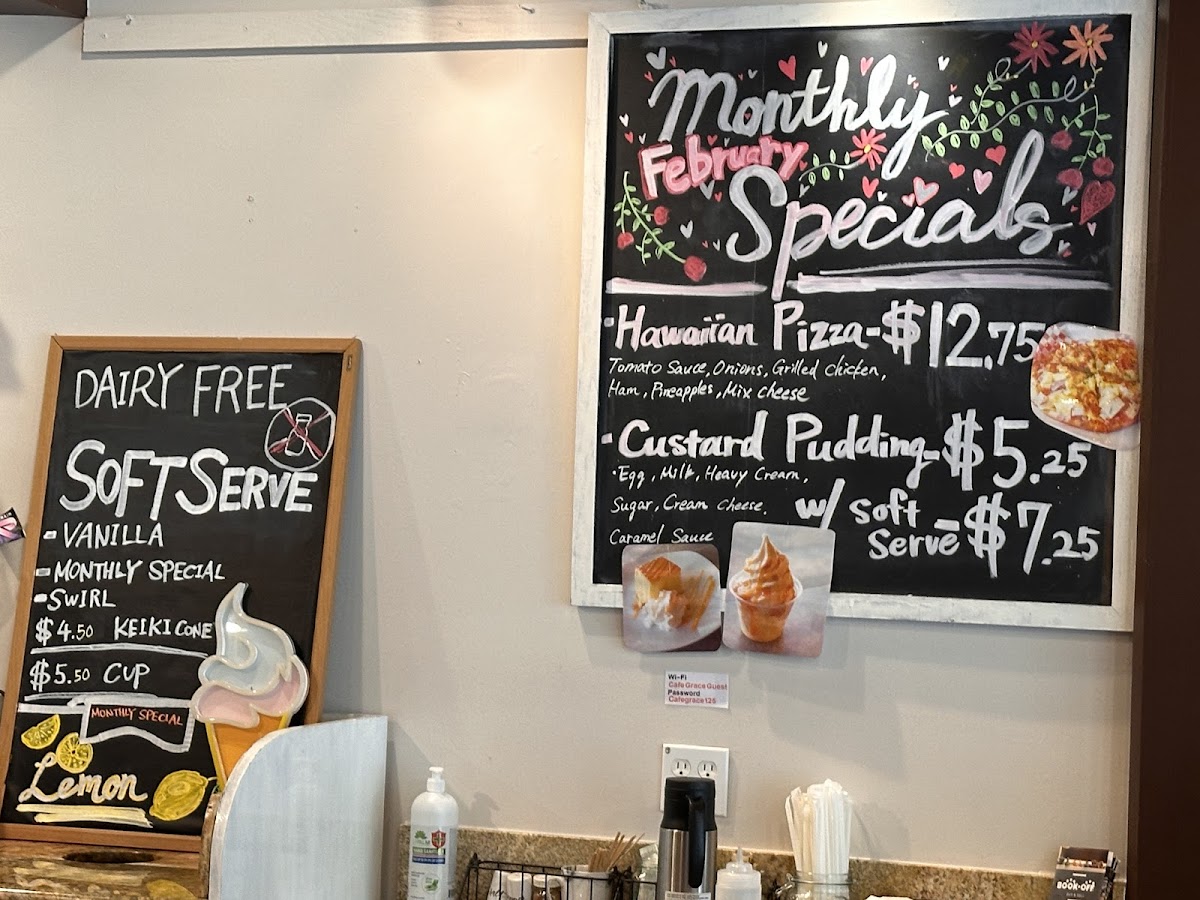 DAIRY FREE
SOFT SERVE
- VANILLA
- MONTHLY SPECIAL
- SWIRL
$4.50 KEIKI CONE
$5.50 CUP
MONTHLY SPECIAL
Lemon
Monthly
February
Specials
· Hawaiian Pizza - $12.75
Tomato Sauce, Onions, Grilled chicken,
Ham, Pineapples, Mix cheese
· Custard Pudding - $5.25
· Egg, Milk, Heavy Cream,
Sugar, Cream cheese.
Caramel Sauce
w/ Soft
Serve - $7.25
Wi-Fi
Cafe Grace Guest
Password
Cafegrace125
BOOK-OFF